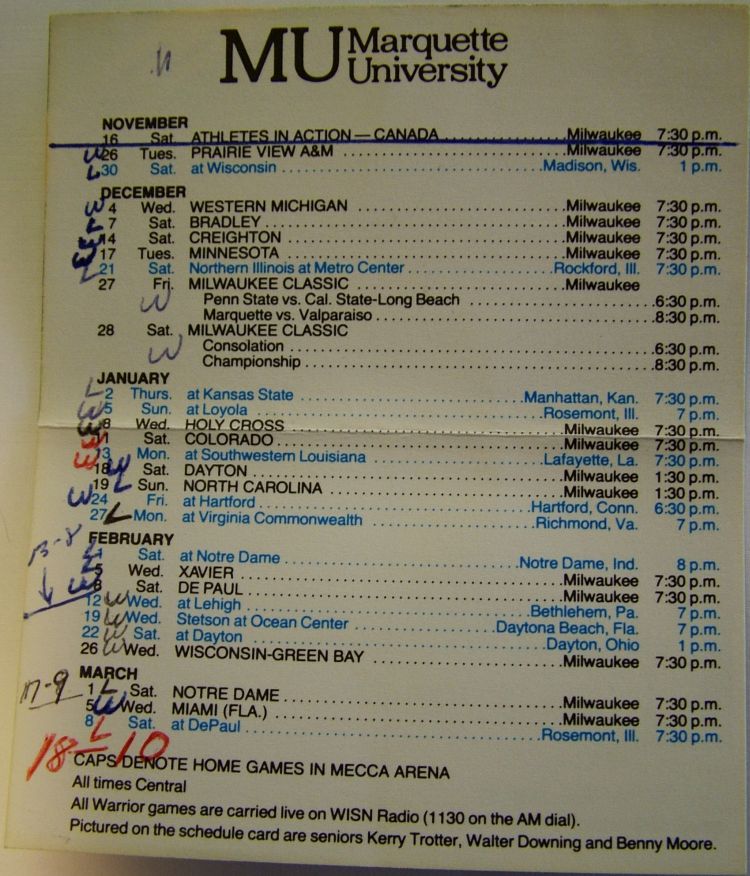 MU Marquette University
NOVEMBER
16 Sat. ATHLETES IN ACTION — CANADA Milwaukee 7:30 p.m.
W 26 Tues. PRAIRIE VIEW A&M Milwaukee 7:30 p.m.
L 30 Sat. at Wisconsin Madison, Wis. 1 p.m.
DECEMBER
W 4 Wed. WESTERN MICHIGAN Milwaukee 7:30 p.m.
7 Sat. BRADLEY Milwaukee 7:30 p.m.
14 Sat. CREIGHTON Milwaukee 7:30 p.m.
17 Tues. MINNESOTA Milwaukee 7:30 p.m.
L 21 Sat. Northern Illinois at Metro Center Rockford, Ill. 7:30 p.m.
27 Fri. MILWAUKEE CLASSIC Milwaukee
W Penn State vs. Cal. State-Long Beach 6:30 p.m.
Marquette vs. Valparaiso 8:30 p.m.
28 Sat. MILWAUKEE CLASSIC
W Consolation 6:30 p.m.
Championship 8:30 p.m.
JANUARY
L 2 Thurs. at Kansas State Manhattan, Kan. 7:30 p.m.
W 5 Sun. at Loyola Rosemont, Ill. 7 p.m.
8 Wed. HOLY CROSS Milwaukee 7:30 p.m.
Sat. COLORADO Milwaukee 7:30 p.m.
W 13 Mon. at Southwestern Louisiana Lafayette, La. 7:30 p.m.
18 W Sat. DAYTON Milwaukee 1:30 p.m.
19 L Sun. NORTH CAROLINA Milwaukee 1:30 p.m.
W 24 Fri. at Hartford Hartford, Conn. 6:30 p.m.
27 L Mon. at Virginia Commonwealth Richmond, Va. 7 p.m.
FEBRUARY
Sat. at Notre Dame Notre Dame, Ind. 8 p.m.
5 Wed. XAVIER Milwaukee 7:30 p.m.
W 8 Sat. DE PAUL Milwaukee 7:30 p.m.
12 W Wed. at Lehigh Bethlehem, Pa. 7 p.m.
19 W Wed. Stetson at Ocean Center Daytona Beach, Fla. 7 p.m.
22 W Sat. at Dayton Dayton, Ohio 1 p.m.
26 W Wed. WISCONSIN-GREEN BAY Milwaukee 7:30 p.m.
MARCH
1 L Sat. NOTRE DAME Milwaukee 7:30 p.m.
5 W Wed. MIAMI (FLA.) Milwaukee 7:30 p.m.
8 L Sat. at DePaul Rosemont, Ill. 7:30 p.m.
18-10
CAPS DENOTE HOME GAMES IN MECCA ARENA
All times Central
All Warrior games are carried live on WISN Radio (1130 on the AM dial).
Pictured on the schedule card are seniors Kerry Trotter, Walter Downing and Benny Moore.